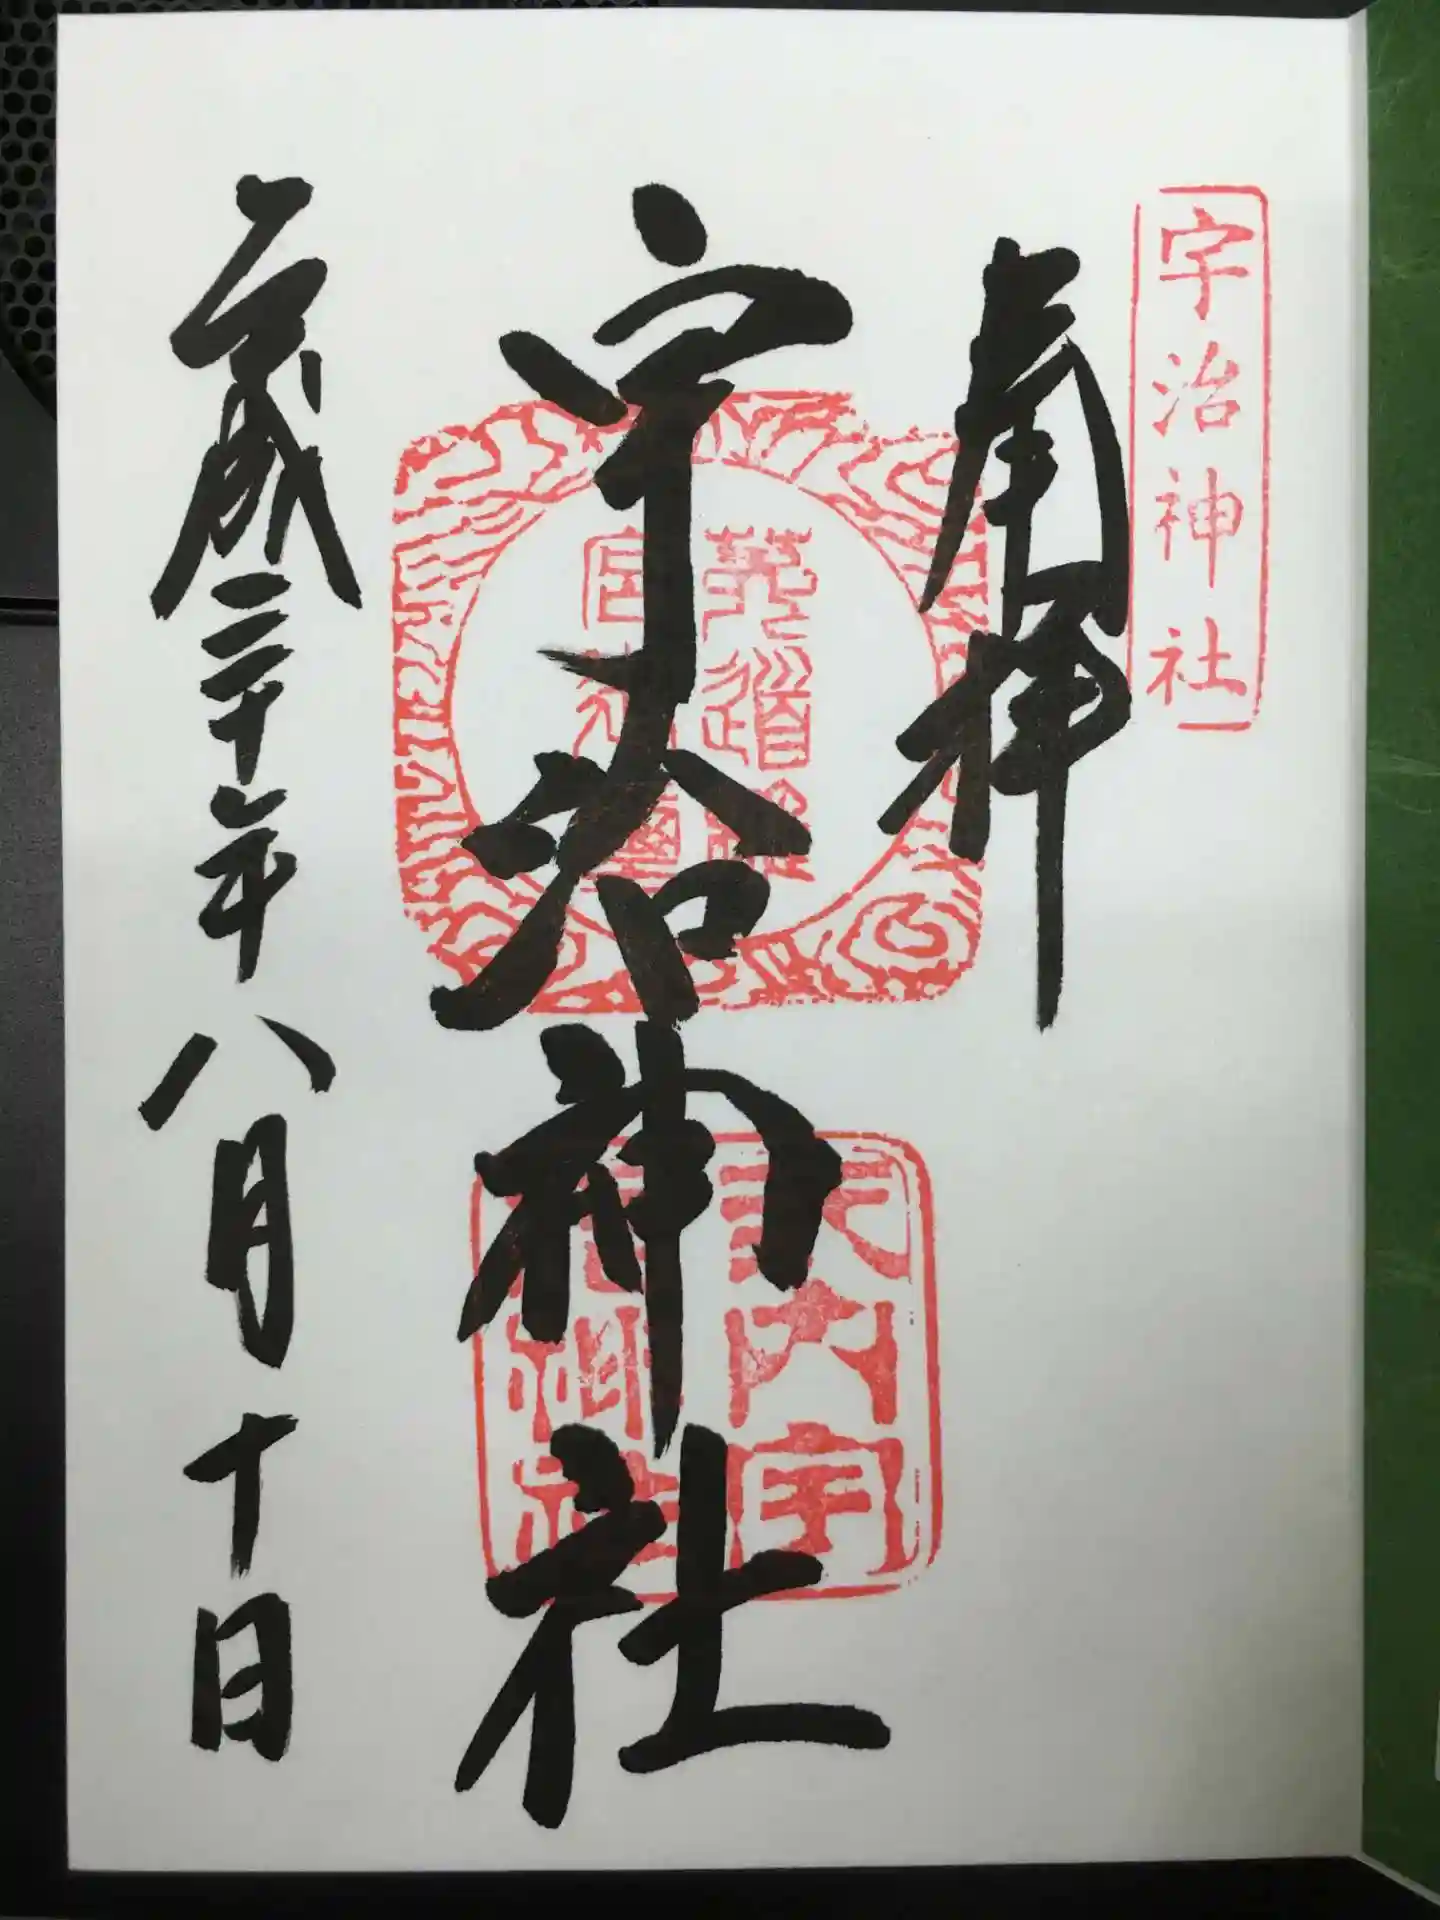 宇治神社
奉拝
宇治神社
式内宇治神社
平成三十年八月十日